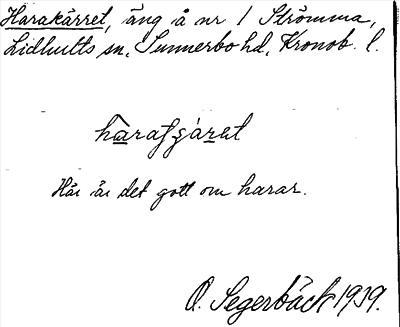 Harakärret, äng å nr 1 Strömma,
Lidhults sn, Sunnerbo hd, Kronob. l.
Här är det gott om harar.
O. Segerbäck 1939.